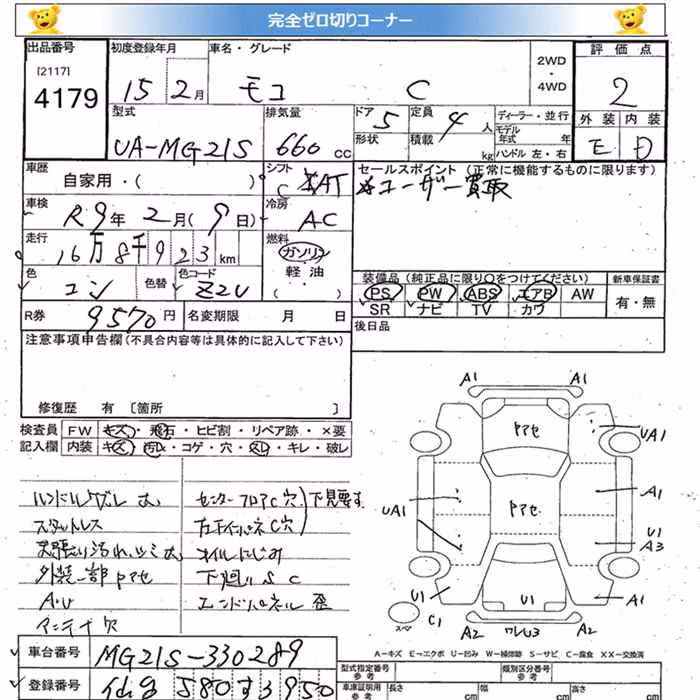 完全ゼロ切りコーナー
出品番号 初度登録年月 車名・グレード 評価点
[2117] 2WD
4179 15 2月 モコ C ・ 2
4WD
型式 排気量 ドア 5 定員 4 人 ディーラー・並行 外装 内装
UA-MG21S 660 CC 形状 積載 kg モデル年式 年 E D
ハンドル 左・右
車歴 シフト セールスポイント(正常に機能するものに限ります)
自家用・( ) C AT ※ユーザー買取
車検 冷房
R9年 2月(9日) AC
走行 燃料
16万8千923km ガソリン
色 色替 色コード 軽油
コン Z2U ( )
装備品(純正品に限り○をつけてください) 新車保証書
PS PW ABS エアB AW 有・無
SR ナビ TV カワ
R券 9570円 名変期限 月 日 後日品
注意事項申告欄(不具合内容等は具体的に記入して下さい)
修復歴 有 [箇所 ]
検査員 FW キズ・飛石・ヒビ割・リペア跡・×要
記入欄 内装 キズ・汚レ・コゲ・穴・スレ・キレ・破レ
ハンドル スレ 大 センターフロアC穴 下見要す
スタットレス C穴
天張り汚れ、シミ大 オイルにじみ
外装一部Pアセ 下廻りS C
A.U エンドパネル 歪
アンテナ欠
A1 A1
Pアセ
UA1
A1
UA1 Pアセ
U1
A3
U1 U1 A1
スペア C1 A2 ワレU3 A2
A－キズ E－エクボ U－凹み W－補修跡 S－サビ C－腐食 XX－交換済
車台番号 MG21S-330289
登録番号 仙台 580 す 3950
型式指定番号 類別区分番号
参考 参考
車庫証明用参考 長さ cm 幅 cm 高さ cm